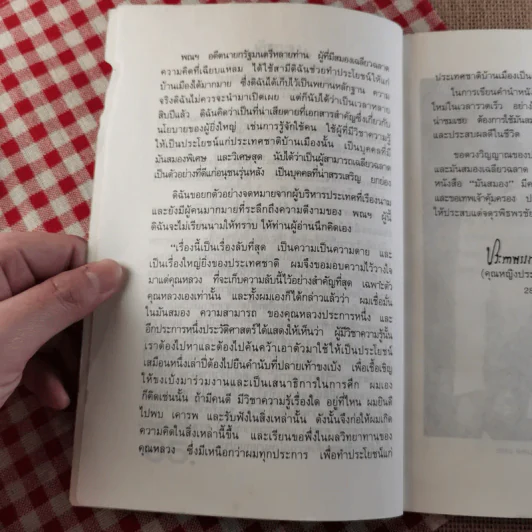 พณฯ อดีตนายกรัฐมนตรีหลายท่าน ผู้ที่มีสมองเฉลียวฉลาด
ความคิดที่เฉียบแหลม ได้ใช้สามีดิฉันช่วยทำประโยชน์ให้แก่
บ้านเมืองได้มากมาย ซึ่งดิฉันได้เก็บไว้เป็นพยานหลักฐาน ความ
จริงดิฉันไม่ควรจะนำมาเปิดเผย แต่ก็นับได้ว่าเป็นเวลาหลาย
สิบปีแล้ว ดิฉันคิดว่าเป็นที่น่าเสียดายที่เอกสารสำคัญซึ่งเกี่ยวกับ
นโยบายของผู้ยิ่งใหญ่ เช่นการรู้จักใช้คน ใช้ผู้ที่มีวิชาความรู้
ให้เป็นประโยชน์แก่ประเทศชาติบ้านเมืองนั้น เป็นบุคคลที่มี
มันสมองพิเศษ และวิเศษสุด นับได้ว่าเป็นผู้สามารถเฉลียวฉลาด
เป็นตัวอย่างที่ดีแก่อนุชนรุ่นหลัง เป็นบุคคลที่น่าสรรเสริญ ยกย่อง
ดิฉันขอยกตัวอย่างจดหมายจากผู้บริหารประเทศที่เรืองนาม
และยังมีผู้คนมากมายที่ระลึกถึงความดีงามของ พณฯ ผู้นี้
ดิฉันจะไม่เรียนนามให้ทราบ ให้ท่านผู้อ่านนึกคิดเอง
“เรื่องนี้เป็นเรื่องลับที่สุด เป็นความเป็นความตาย และ
เป็นเรื่องใหญ่ยิ่งของประเทศชาติ ผมจึงขอมอบความไว้วางใจ
มาแด่คุณหลวง ที่จะเก็บความลับนี้ไว้อย่างสำคัญที่สุด เฉพาะตัว
คุณหลวงเองเท่านั้น และทั้งผมเองก็ได้กล่าวแล้วว่า ผมเชื่อมั่น
ในมันสมอง ความสามารถ ของคุณหลวงประการหนึ่ง และ
อีกประการหนึ่งประวัติศาสตร์ได้แสดงให้เห็นว่า ผู้มีวิชาความรู้นั้น
เราต้องไปหาและต้องไปค้นคว้าเอาตัวมาใช้ให้เป็นประโยชน์
เสมือนหนึ่งเล่าปี่ต้องไปยืนคำนับที่ปลายเท้าขงเบ้ง เพื่อเชื้อเชิญ
ให้ขงเบ้งมาร่วมงานและเป็นเสนาธิการในการศึก ผมเอง
ก็คิดเช่นนั้น ถ้ามีคนดี มีวิชาความรู้เรื่องใด อยู่ที่ไหน ผมยินดี
ไปพบ เคารพ และรับฟังในสิ่งเหล่านั้น ดังนั้นจึงก่อให้ผมเกิด
ความคิดในสิ่งเหล่านี้ขึ้น และเรียนขอพึ่งในผลวิทยาทานของ
คุณหลวง ซึ่งมีเหนือกว่าผมทุกประการ เพื่อทำประโยชน์แก่
ประเทศชาติบ้านเมืองเป็น
ในการเขียนคำนำหนัง
ใหม่ในเวลารวดเร็ว อย่าง
น่าชมเชย ต้องการใช้มัน
และประสบผลดีในชีวิต
ขอดวงวิญญาณของ
และมันสมองเฉลียวฉลาด
หนังสือ “มันสมอง” มี
และขอเทพเจ้าคุ้มครอง
ให้ประสบแด่จตุรพิธพรชัย
(คุณหญิงประ